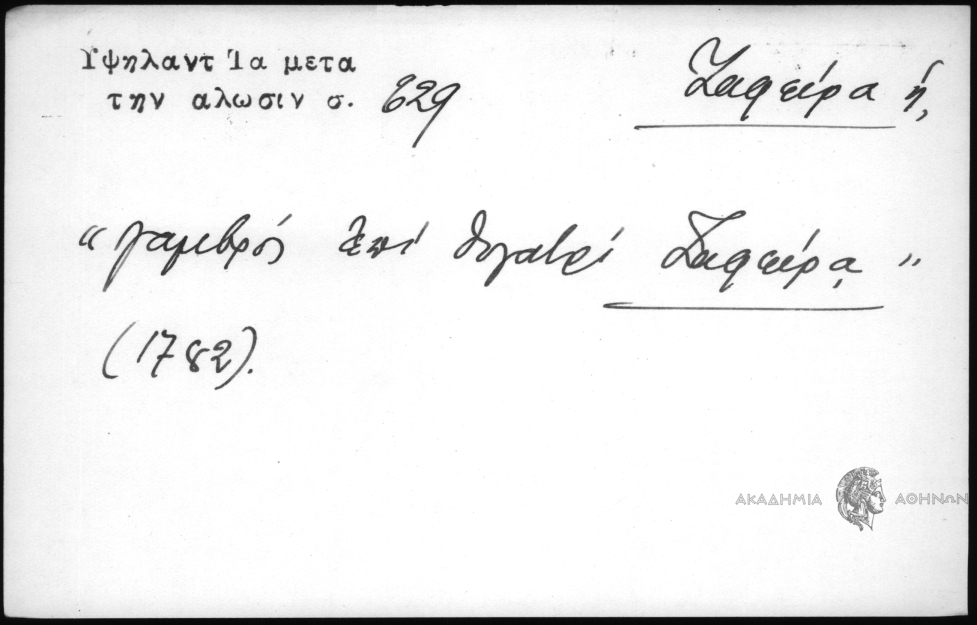 Υψηλαντ Ἰα μετα
την αλωσιν σ. 629
Ζαφείρα ἡ,
“γαμβρός ἐπί θυγατρί Ζαφείρᾳ”
(1782).
ΑΚΑΔΗΜΙΑ ΑΘΗΝΩΝ